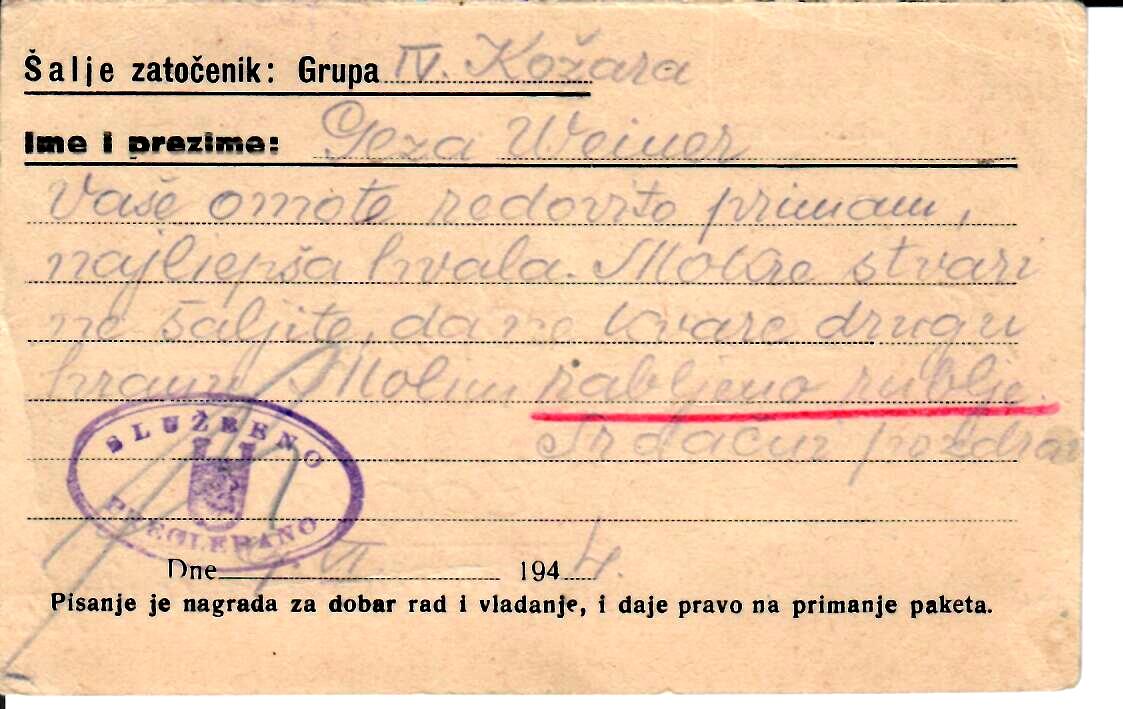 Šalje zatočenik: Grupa IV. Kožara
Ime i prezime: Geza Weiner
Vaše omote redovito primam,
najljepša hvala. Mokre stvari
ne šaljite, da ne kvare drugu
hranu. Molim rabljeno rublje.
Srdačni pozdrav
SLUŽBENO
PREGLEDANO
Dne VI. 1944.
Pisanje je nagrada za dobar rad i vladanje, i daje pravo na primanje paketa.